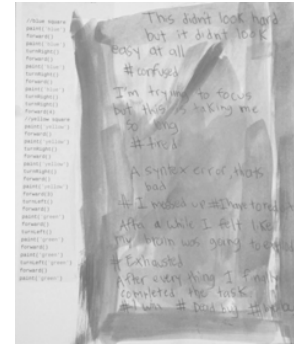 //blue square
paint('blue')
forward()
paint('blue')
turnRight()
forward()
paint('blue')
turnRight()
forward()
paint('blue')
turnRight()
forward(3)
//yellow square
paint('yellow')
forward()
paint('yellow')
turnRight()
forward()
paint('yellow')
turnRight()
forward()
paint('yellow')
forward(3)
turnLeft()
paint('green')
forward()
turnLeft()
paint('green')
forward()
paint('green')
turnLeft('green')
forward()
paint('green')
This didnt look hard
but it didnt look
easy at all
#confused
I'm trying to focus
but this is taking me
so long
#tired
A syntax error, thats
bad
# I messed up #I have to redo it
After a while I felt like
my brain was going to explode
# Exhausted
After everything I finally
completed the task